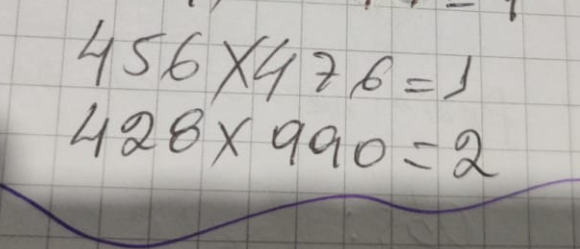 456×476=1
428×990=2